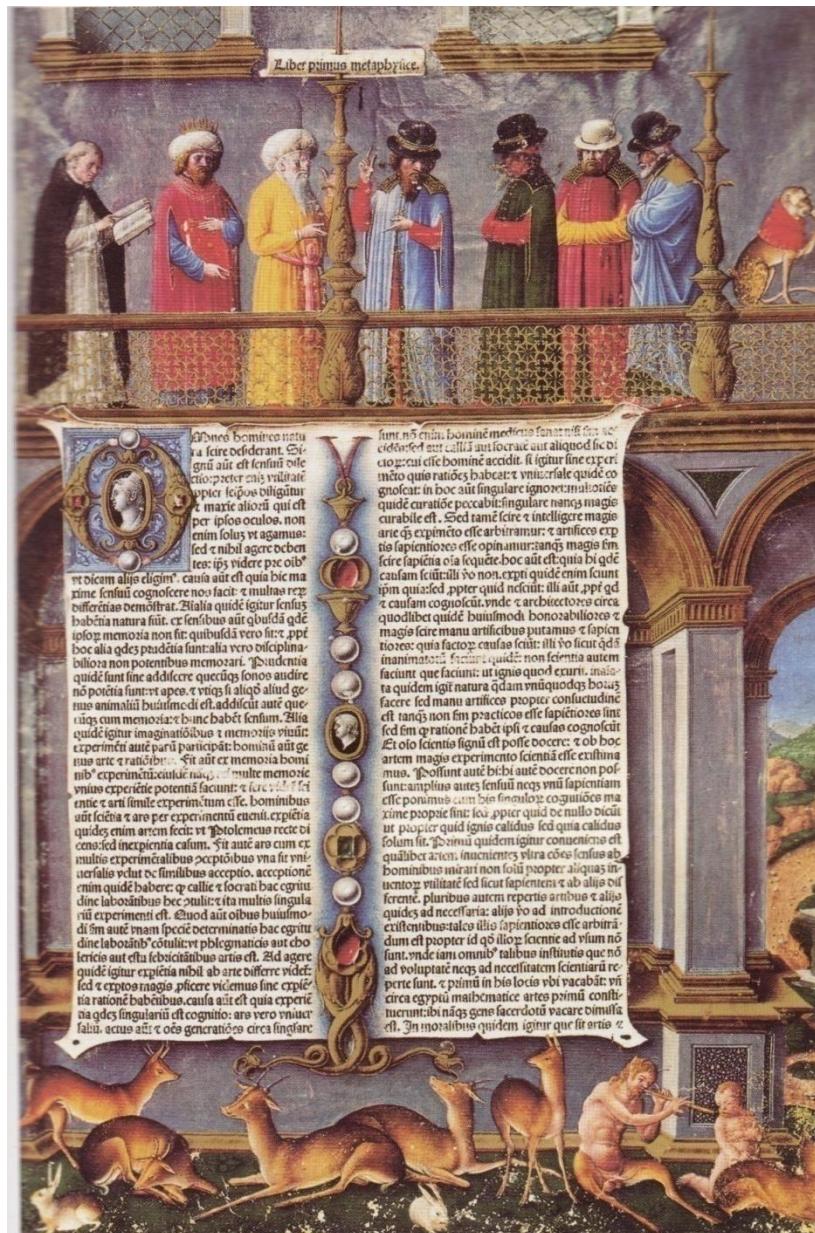 Liber primus metaphysice.
Omnes homines natu
ra scire desiderant. Si-
gnū aūt est sensuū dile
ctio: preter enim vtilitatē
ppter seip̄os diligūtur
t maxie aliorū qui est
per ipsos oculos. non
enim soluz vt agamus:
sed t nihil agere deben
tes: ip̄z videre pre oib⁹
vt dicam alijs eligim⁹. causa aūt est quia hic ma
xime sensuū cognoscere nos facit: t multas rerz
differētias demōstrat. Aīalia quidē igitur sensuz
habētia natura fiūt. ex sensibus aūt qbusdā qdē
ipsoƶ memoria non fit: quibusdā vero fit: t ,ppt̄
hoc alia qdez prudētia sunt: alia vero disciplina-
biliora non potentibus memorari. Prudentia
quidē sunt sine addiscere quecūqz sonos audire
nō potētia sunt: vt apes. t vtiqz si aliqd̄ aliud ge-
nus animaliū huiusmodi est. addiscūt autē que-
cūqz cum memoria: t hunc habēt sensum. Alia
quidē igitur imaginatiōibus t memorijs viuūt:
experimēti autē parū participāt: hominū aūt ge
nus arte t ratiōib⁹. Fit aūt ex memoria homi
nib⁹ experimētū: eiusdē multe memorie
vnius experiētie potentiā faciunt: t
entie t arti simile experimētum esse. hominibus
aūt sciētia t ars per experimentū euenit. expiētia
quidez enim artem fecit: vt Ptolemeus recte di
cens: sed inexpientia casum. Fit autē ars cum ex
multis experimētalibus vna fit vni-
uersalis velut de similibus acceptio. acceptionē
enim quidē habere: q̄ callie t socrati hac egritu
dine laborātibus hec ,ptulit: t ita multis singula
riū experimenti est. Quod aūt oibus huiusmo-
di f̄m autē vnam speciē determinatis hac egritu
dine laborātib⁹ cōtulit: vt phlegmaticis aut cho
lericis aut estu febricitātibus artis est. Ad agere
quidē igitur expiētia nihil ab arte differre videt̄:
sed t exptos magis ,pficere videmus sine expiē-
tia rationē habētibus. causa aūt est quia experiē
tia qdez singulariū est cognitio: ars vero vniuer
saliū. actus aūt t oēs generatiōes circa singlare
sunt. nō enim hominē medicus sanat nisi
cidēs: sed aut calliā aut socratē aut aliquod sic di
ctoƶ: cui esse hominē accidit. si igitur sine experi
mēto quis ratiōez habeat: t vniuersale quidē co
gnoscat: in hoc aūt singulare ignoret: multotiēs
quidē curatiōe peccabit: singulare nanqz magis
curabile est. Sed tamē scire t intelligere magis
arte q̄z expimēto esse arbitramur: t artifices exp
tis sapientiores esse opinamur: tanqz magis f̄m
scire sapiētia oīa sequēte. hoc aūt est: quia hi qdē
causam sciūt: illi v̄o non. expti quidē enim sciunt
ip̄m quia: sed ,ppter quid nesciūt: illi aūt ,ppt̄ qd̄
t causam cognoscūt. vnde t architectores circa
quodlibet quidē huiusmodi honorabiliores t
magis scire manu artificibus putamus t sapien
tiores: quia factorz causas sciūt: illi v̄o sicut qdā
inanimatorū faciunt quidē: non scientia autem
faciunt que faciunt: ut ignis quod exurit. inaīa-
ta quidem igit̄ natura qdam vnūquodqz horuz
facere sed manu artifices propter consuetudinē
est tanqz non f̄m practicos esse sapiētiores sint
sed f̄m q̄ rationē habēt ip̄i t causas cognoscūt
Et oīo scientis signū est posse docere: t ob hoc
artem magis experimento scientiā esse existima
mus. Possunt autē hi: hi autē docere non pos-
sunt: amplius autez sensuū neqz vnū sapientiam
esse ponimus cum his singulorz cognitiōes ma
xime proprie sint: sed ,ppter quid de nullo dicūt
ut propter quid ignis calidus sed quia calidus
solum sit. Primū quidem igitur conueniens est
quālibet artem inuenientez vltra cōes sensus ab
hominibus mirari non solū propter aliquaz in-
uentorz vtilitatē sed sicut sapientem t ab alijs dif
ferentē. pluribus autem repertis artibus t alijs
quidez ad necessaria: alijs v̄o ad introductionē
existentibus: tales illis sapientiores esse arbitrā-
dum est propter id q̄ illorz scientie ad vsum nō
sunt. vnde iam omnib⁹ talibus institutis que nō
ad voluptatē neqz ad necessitatem scientiarū re-
perte sunt. t primū in his locis vbi vacabāt: vn̄
circa egyptū mathematice artes primū consti-
tuerunt: ibi nāqz gens sacerdotū vacare dimissa
est. In moralibus quidem igitur que sit artis t